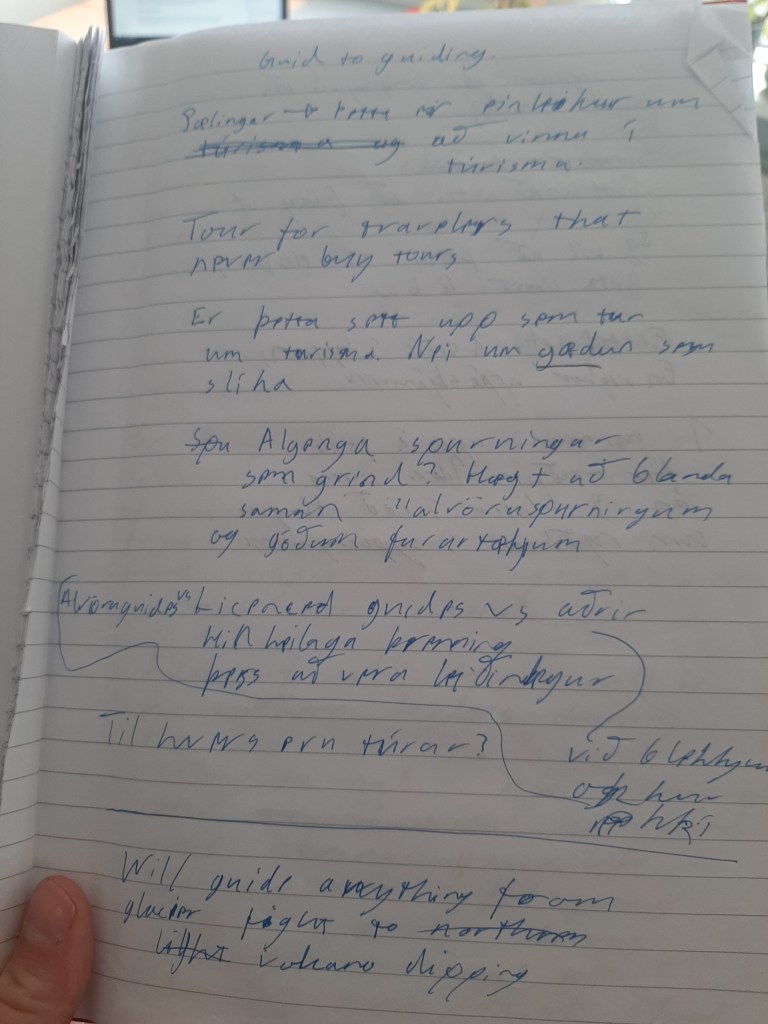 Guid to guiding.
Pælingar → Þetta er einleikur um
túrisma og að vinna í
túrisma.
Tour for travelers that
never buy tours
Er þetta sett upp sem tur
um turisma. Nei um gædun sem
slíka
Spu Algenga spurningar
sem grind? Hægt að blanda
saman "alvöruspurningum
og góðum furartækjum
Alvöruguides vs Licenced guides vs aðrir
Hin heilaga þrenning
þess að vera leiðindagur
Til hvers eru túrar?
við blekkjum
ekki
Will guide anything from
glacier fight to northern
light volcano dipping